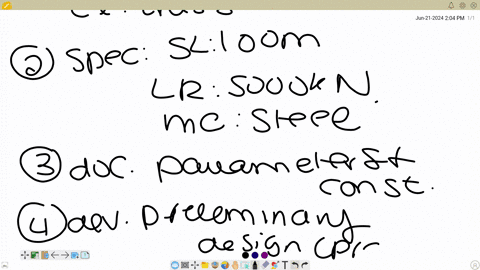 Jun-21-2024 2:04 PM 1/1
② Spec: SL:100m
LR:5000kN.
mc:Steel
③ doc. parameters &
const.
④ dev. Preleminary
design (